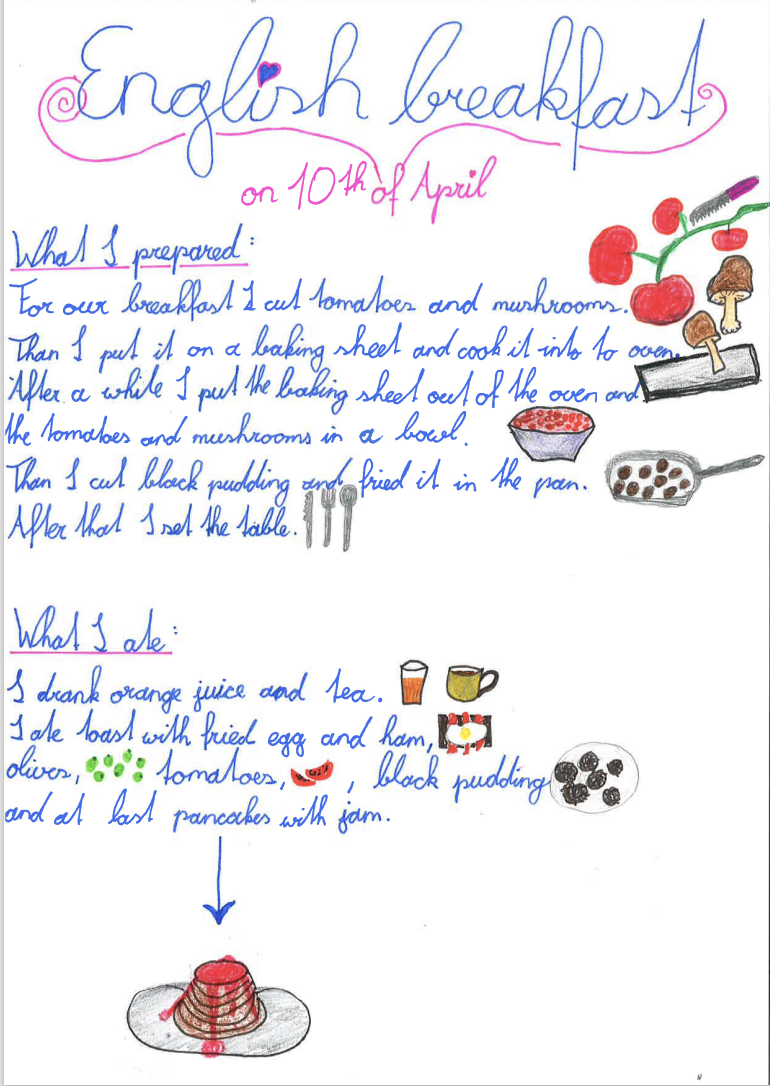 English breakfast
on 10th of April
What I prepared:
For our breakfast I cut tomatoes and mushrooms.
Than I put it on a baking sheet and cook it into to oven.
After a while I put the baking sheet out of the oven and
the tomatoes and mushrooms in a bowl.
Than I cut black pudding and fried it in the pan.
After that I set the table.
What I ate:
I drank orange juice and tea.
I ate toast with fried egg and ham,
olives, tomatoes, , black pudding
and at last pancakes with jam.